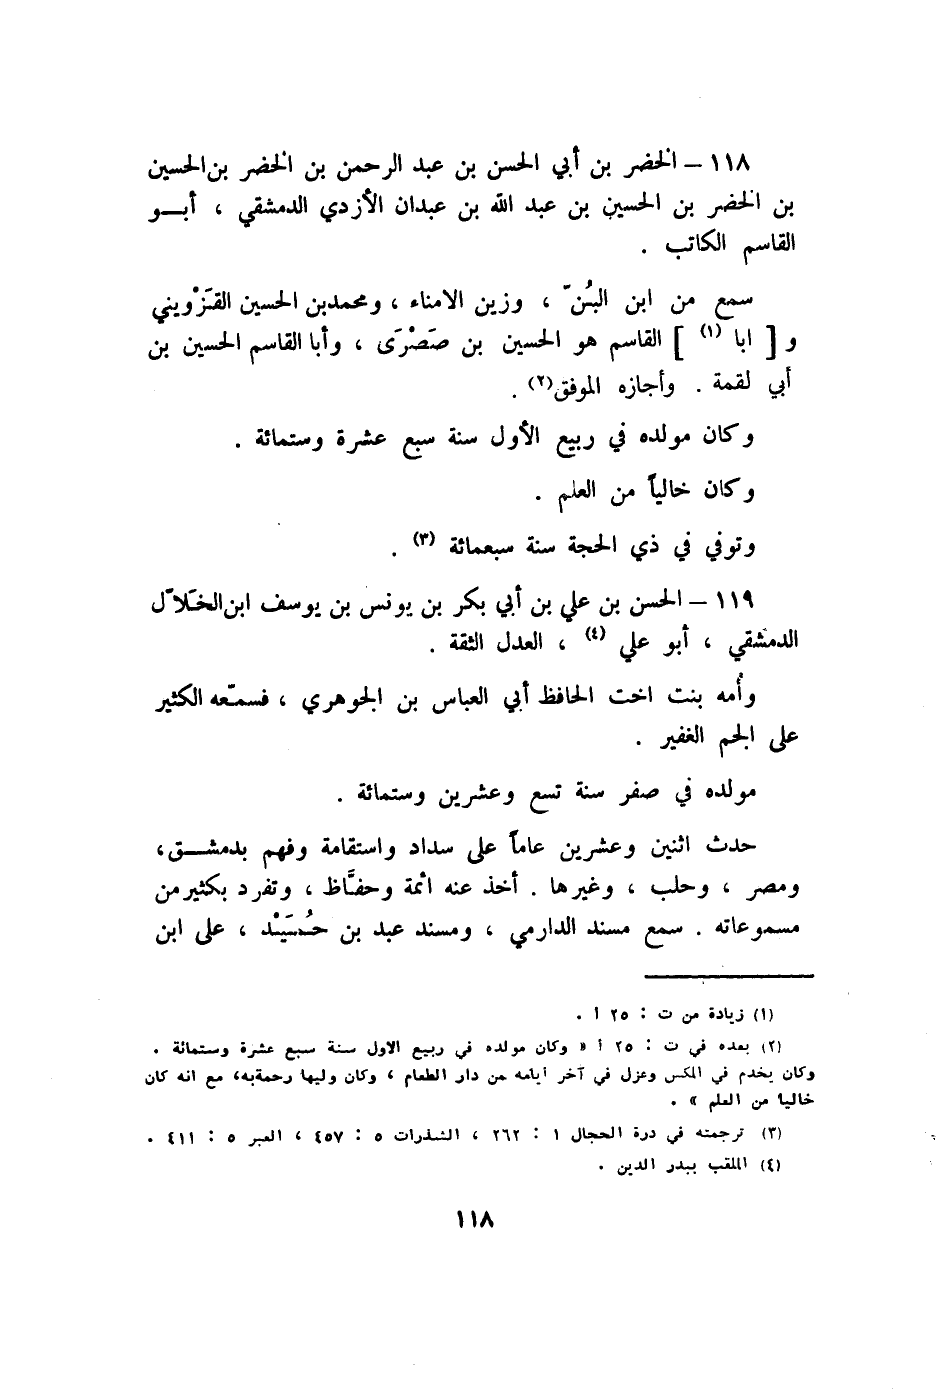 ١١٨ – الخضر بن أبي الحسن بن عبد الرحمن بن الخضر بن الحسين
بن الخضر بن الحسين بن عبد الله بن عبدان الأزدي الدمشقي ، أبــو
القاسم الكاتب .
سمع من ابن البُنّ ، وزين الامناء ، ومحمد بن الحسين القَزْويني
و [ ابا (١) ] القاسم هو الحسين بن صَصْرَى ، وأبا القاسم الحسين بن
أبي لقمة . وأجازه الموفق(٢) .
وكان مولده في ربيع الأول سنة سبع عشرة وستمائة .
وكان خالياً من العلم .
وتوفي في ذي الحجة سنة سبعمائة (٣) .
١١٩ – الحسن بن علي بن أبي بكر بن يونس بن يوسف ابن الخَلاَّل
الدمشقي ، أبو علي (٤) ، العدل الثقة .
وأُمه بنت اخت الحافظ أبي العباس بن الجوهري ، فسمّعه الكثير
على الجم الغفير .
مولده في صفر سنة تسع وعشرين وستمائة .
حدث اثنين وعشرين عاماً على سداد واستقامة وفهم بدمشــق،
ومصر ، وحلب ، وغيرها . أخذ عنه ائمة وحفَّاظ ، وتفرد بكثير من
مسموعاته . سمع مسند الدارمي ، ومسند عبد بن حُمَيْد ، على ابن
(١) زيادة من ت : ٢٥ أ .
(٢) بعده في ت : ٢٥ أ « وكان مولده في ربيع الاول سنة سبع عشرة وستمائة .
وكان يخدم في المكس وعزل في آخر أيامه من دار الطعام ، وكان وليها رحمة به، مع انه كان
خاليا من العلم » .
(٣) ترجمته في درة الحجال ١ : ٢٦٢ ، الشذرات ٥ : ٤٥٧ ، العبر ٥ : ٤١١ .
(٤) الملقب ببدر الدين .
١١٨